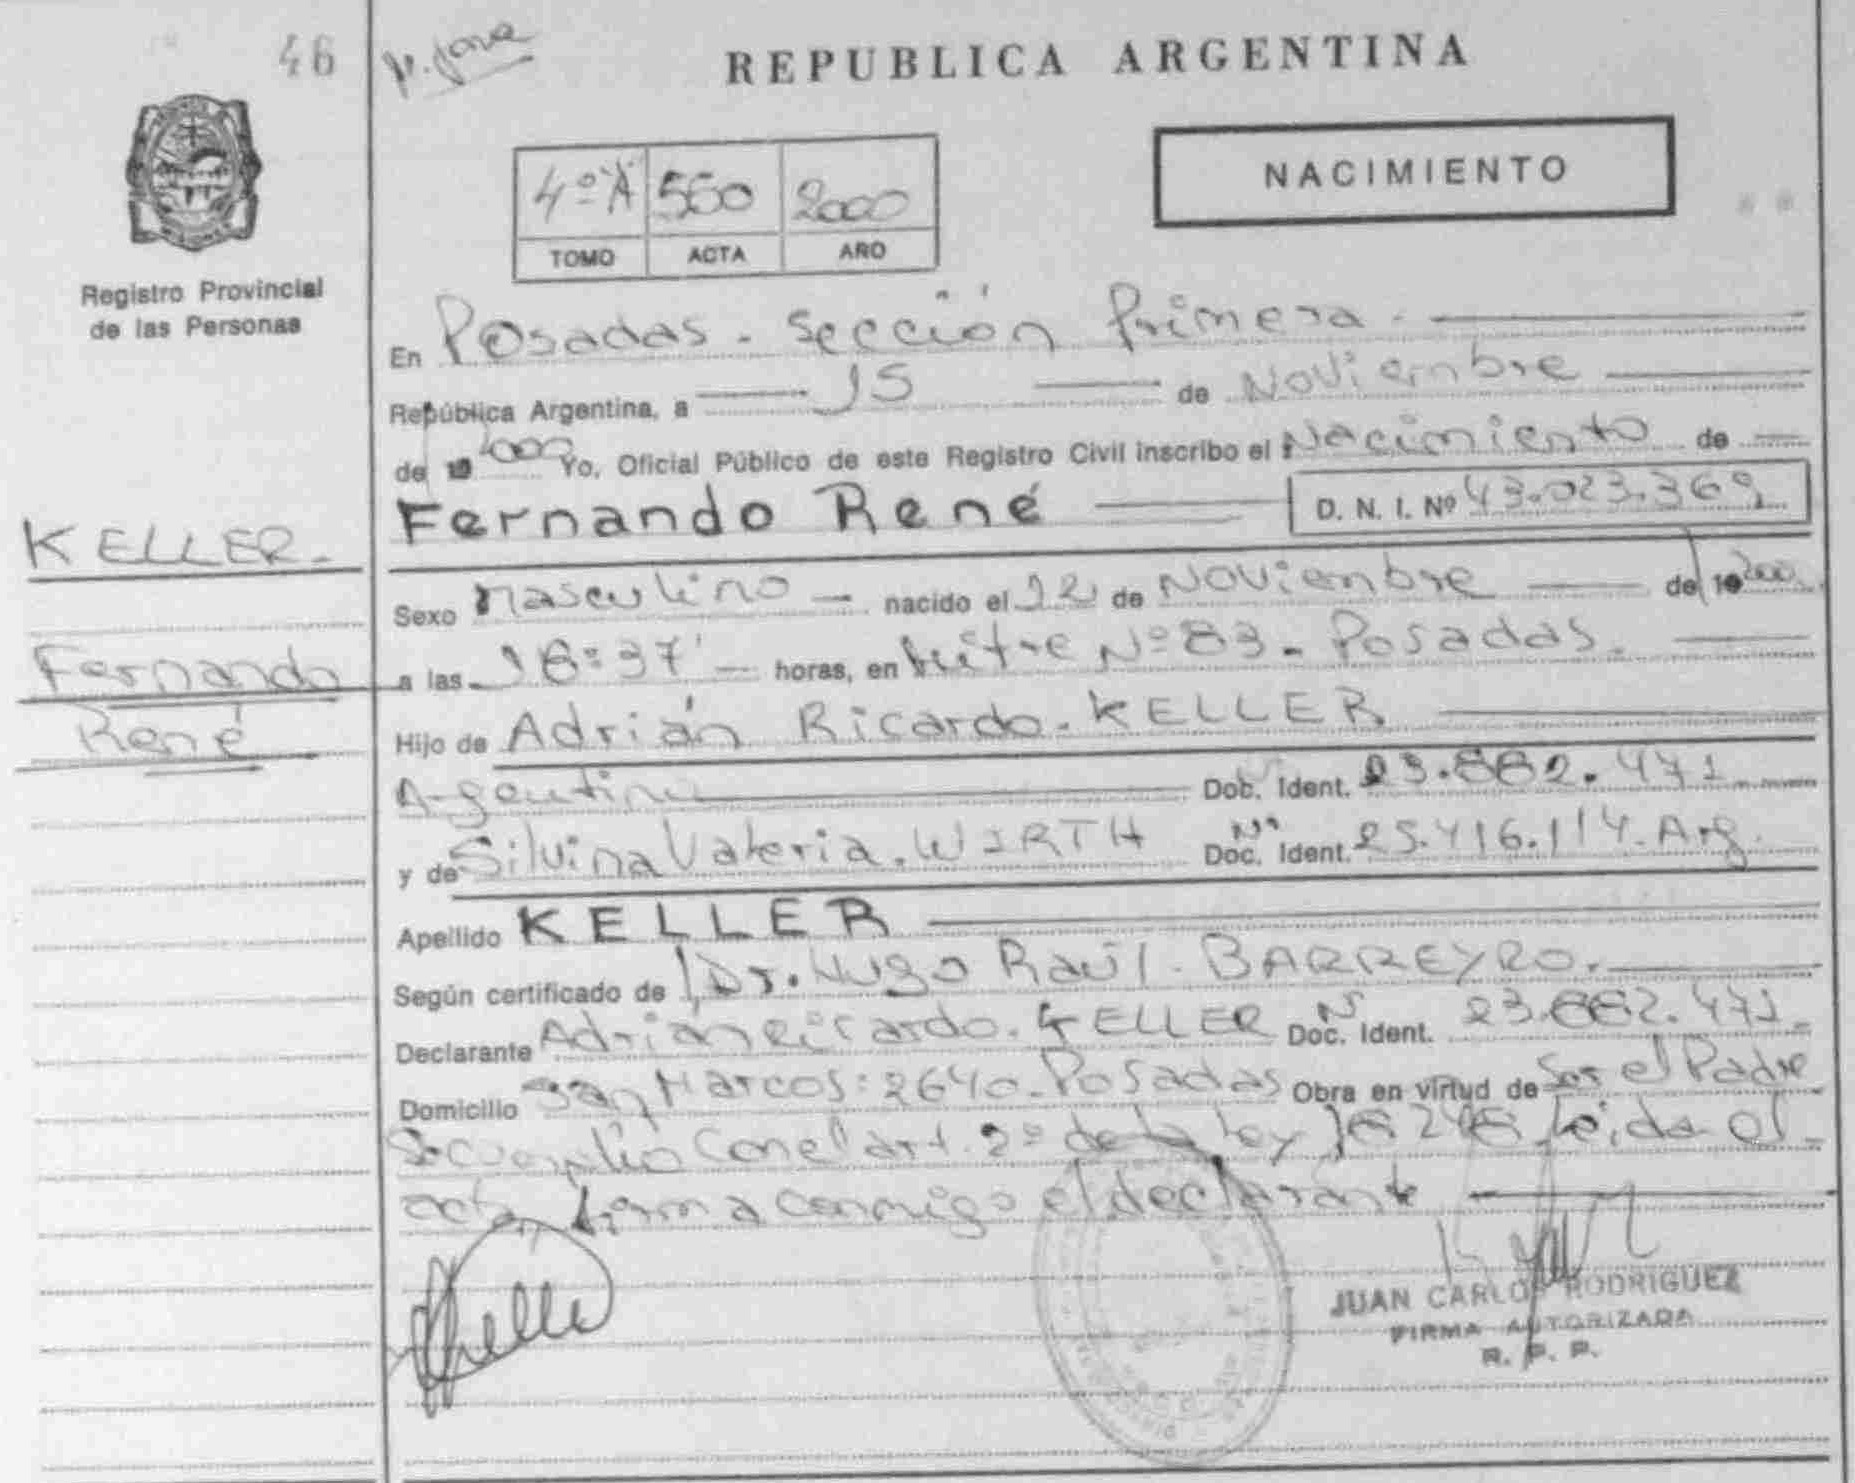 46
REPUBLICA ARGENTINA
NACIMIENTO
4º A 560 2000
TOMO ACTA AÑO
Registro Provincial
de las Personas
En Posadas - Sección Primera -
República Argentina, a 15 de Noviembre
de 2000 Yo, Oficial Público de este Registro Civil inscribo el Nacimiento de
Fernando René D. N. I. Nº 43.023.369
KELLER -
Sexo masculino - nacido el 12 de Noviembre de 2000
Fernando
a las 18:37' - horas, en Mitre Nº 83 - Posadas.
René
Hijo de Adrián Ricardo - KELLER
Argentino Doc. Ident. 23.882.471
y de Silvina Valeria. WIRTH Nº Doc. Ident. 25.416.114. Arg.
Apellido KELLER
Según certificado de Dr. Hugo Raúl. BARREYRO.
Declarante Adrián Ricardo. KELLER Nº Doc. Ident. 23.882.471
Domicilio San Marcos: 2640 - Posadas Obra en virtud de Ser el Padre
Se cumplió con el art. 2º de la ley 18248 Leída el
acta, firma conmigo el declarante
JUAN CARLOS RODRIGUEZ
FIRMA AUTORIZADA
R. P. P.